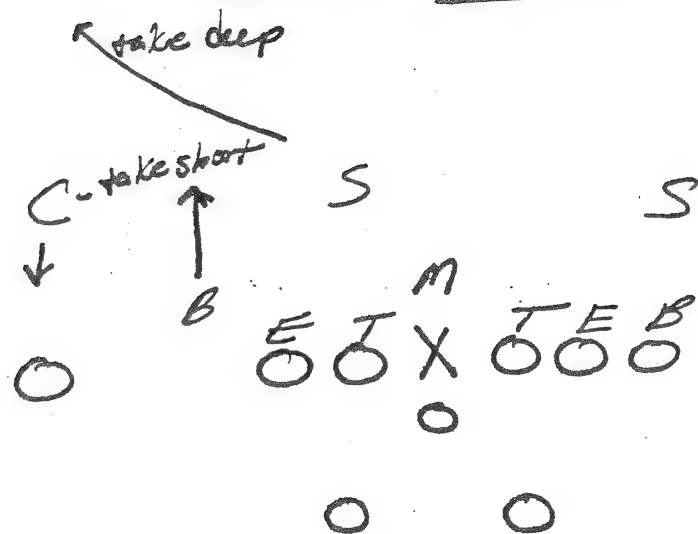 take deep
C - take short
S S
M
B E T T E B
X